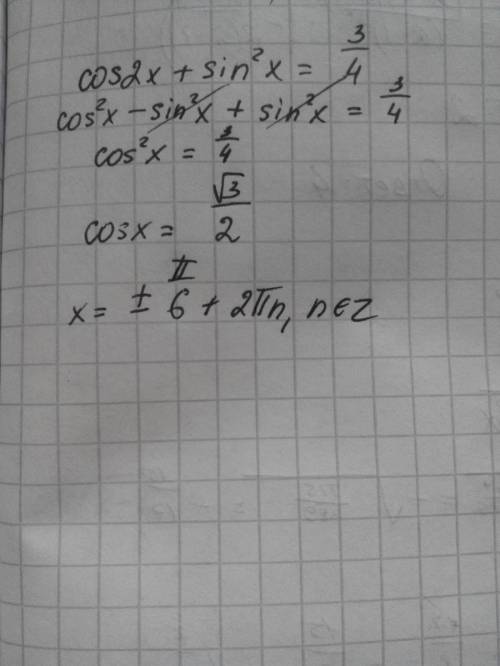 cos2x + sin²x = 3/4
cos²x - sin²x + sin²x = 3/4
cos²x = 3/4
cosx = √3/2
x = ± π/6 + 2πn, n∈Z